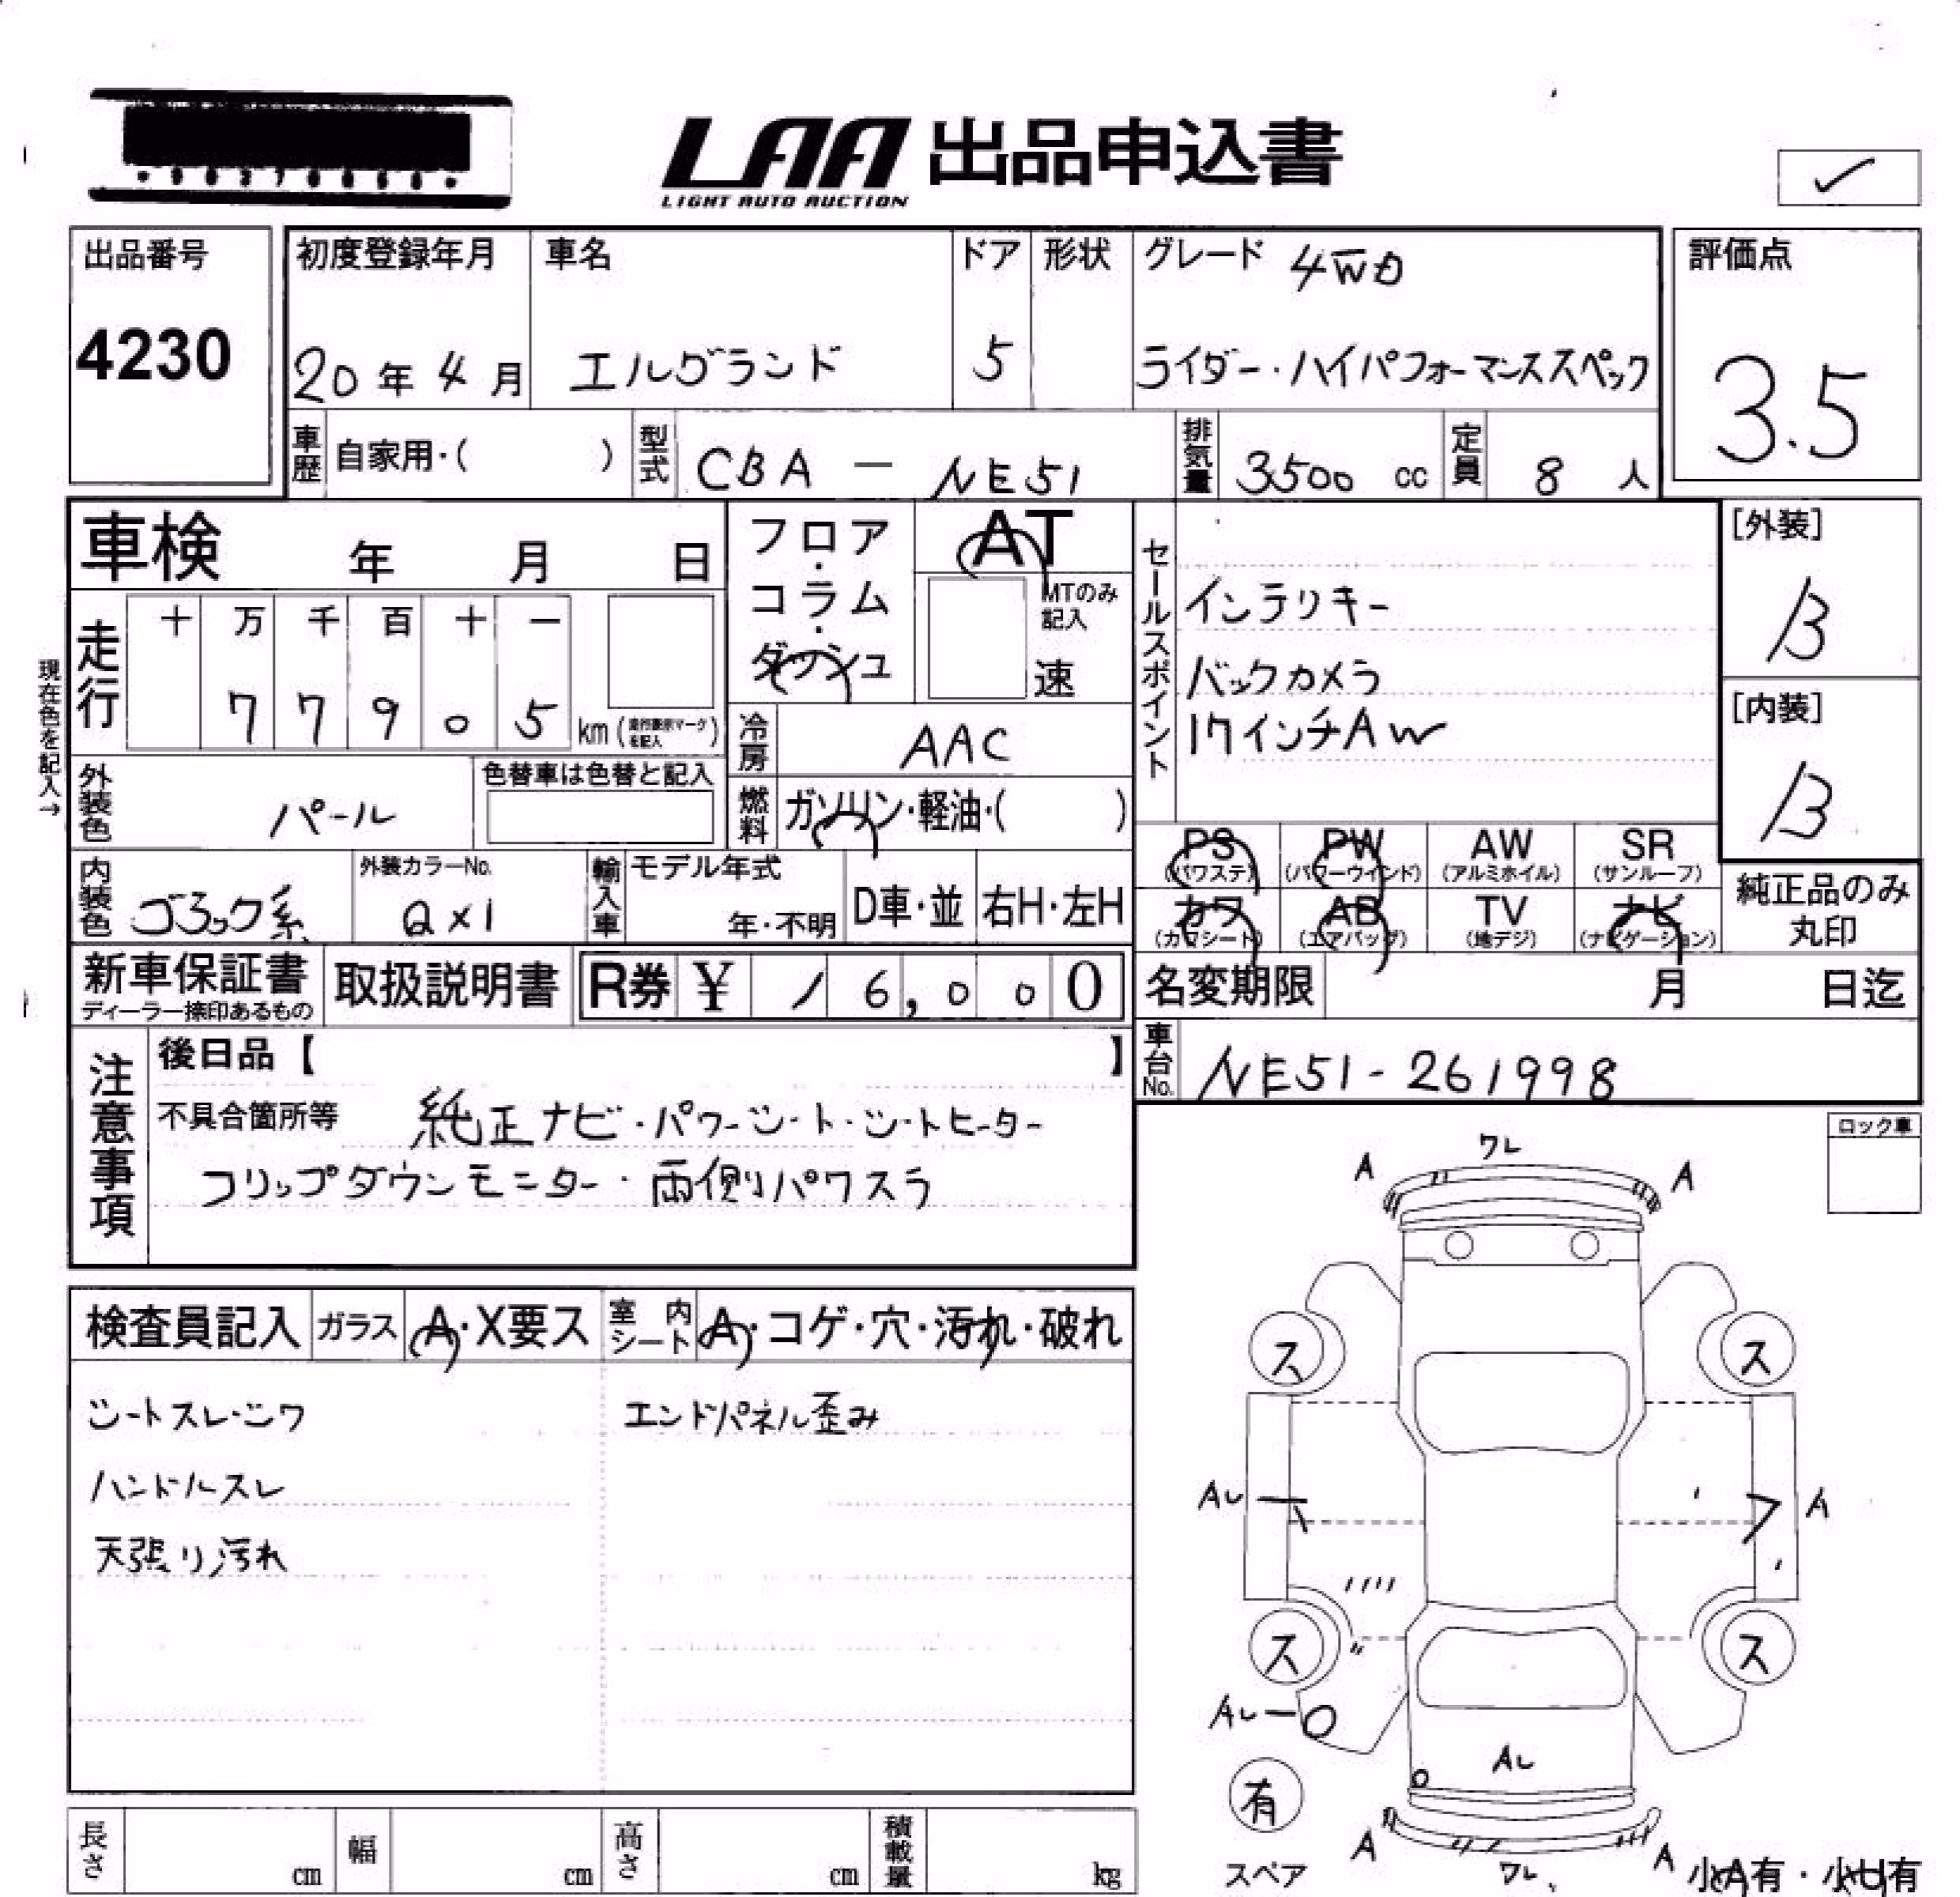 LAA 出品申込書
LIGHT AUTO AUCTION
出品番号
4230
初度登録年月
20年4月
車名
エルグランド
ドア
5
形状
グレード 4WD
ライダー・ハイパフォーマンススペック
評価点
3.5
車歴
自家用・( )
型式
CBA - NE51
排気量
3500 cc
定員
8 人
車検 年 月 日
フロア・コラム・ダッシュ
AT
MTのみ記入
速
セールスポイント
インテリキー
バックカメラ
17インチAW
[外装]
B
[内装]
B
現在色を記入→
走行
十 万 千 百 十 一
7 7 9 0 5 km
冷房
AAC
外装色
パール
色替車は色替と記入
燃料
ガソリン・軽油・( )
PS PW AW SR
(パワステ) (パワーウィンド) (アルミホイル) (サンルーフ)
カワ AB TV ナビ
(カワシート) (エアバッグ) (地デジ) (ナビゲーション)
純正品のみ
丸印
内装色
外装カラーNo.
QX1
輸入車
モデル年式
年・不明
D車・並
右H・左H
新車保証書
ディーラー捺印あるもの
取扱説明書
R券 ¥ 16,000
名変期限 月 日迄
車台No.
NE51-261998
注意事項
後日品【 】
不具合箇所等 純正ナビ・パワーシート・シートヒーター
フリップダウンモニター・両側パワスラ
ロック車
検査員記入
ガラス
A・X要ス
室内シート
A・コゲ・穴・汚れ・破れ
シートスレ・シワ
エンドパネル歪み
ハンドルスレ
天張り汚れ
ワレ
A
A
ス
ス
AU
A
ス
ス
AU
AU
有
スペア
A
ワレ
A
小A有・小U有
長さ cm
幅 cm
高さ cm
積載量 kg